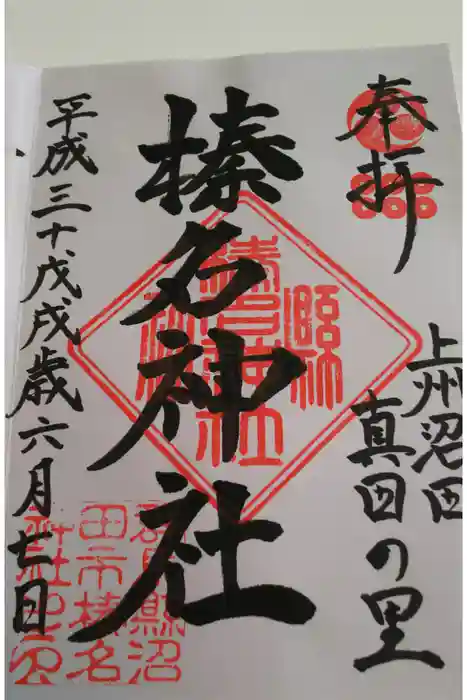 奉拝
上州沼田
真田の里
榛名神社
平成三十、戊戌歳六月七日
群馬縣沼
田市榛名
神社之印